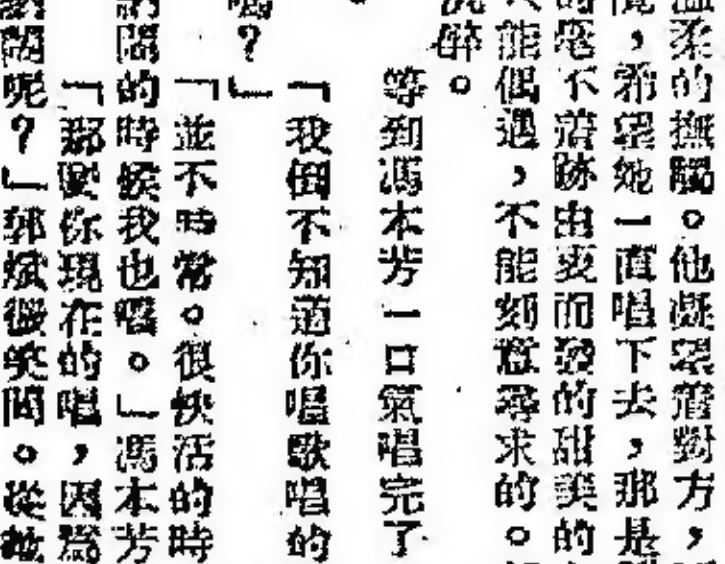 溫柔的撫觸。他凝望着對方，
，希望她一直唱下去，那是
的毫不着跡由衷而發的甜美的
能偶遇，不能刻意尋求的。
沉醉。
等到馮本芳一口氣唱完了
「我倒不知道你唱歌唱的
嗎？」
「並不時常。很快活的時
悶的時候我也唱。」馮本芳
「那麼你現在的唱，因為
悶呢？」郭斌微笑問。從